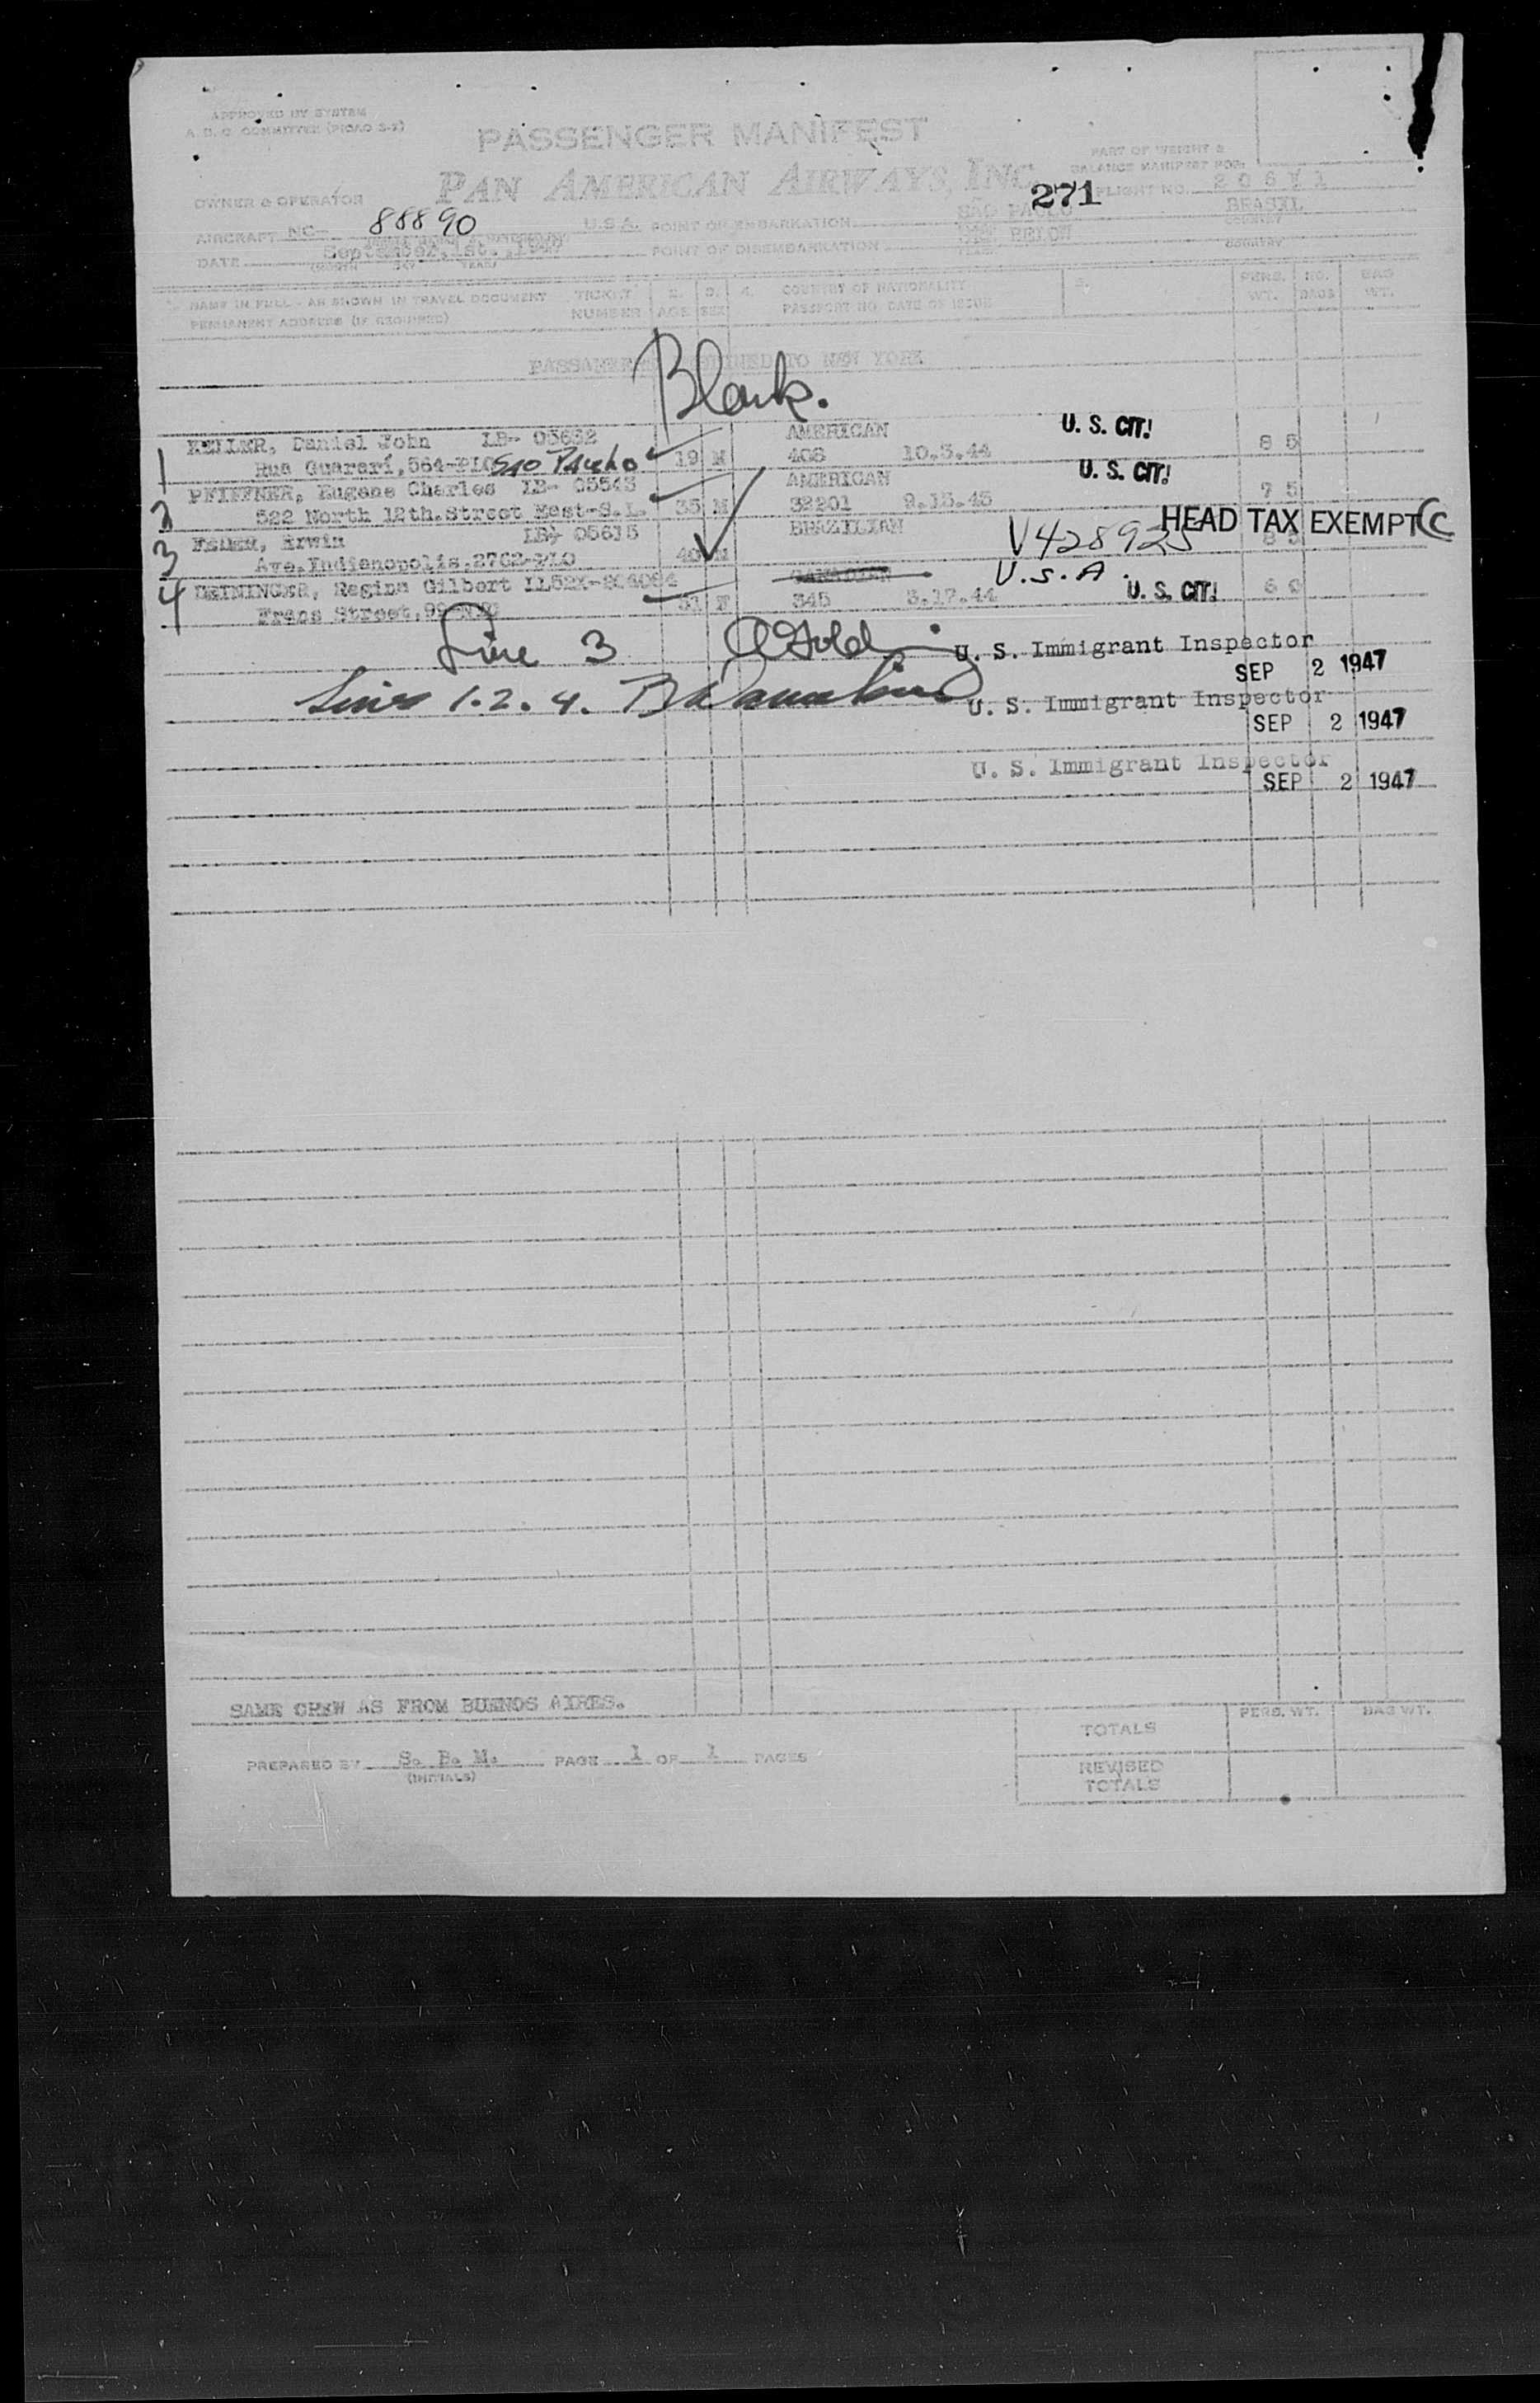 APPROVED BY SYSTEM
A.D.C. COMMITTEE (PICAO S-2)
PASSENGER MANIFEST
PAN AMERICAN AIRWAYS, INC.
271
PART OF WEIGHT &
BALANCE MANIFEST FOR:
FLIGHT NO.
OWNER & OPERATOR
AIRCRAFT NC- 88890 U.S.A. POINT OF EMBARKATION SÃO PAULO BRASIL
COUNTRY
DATE September, 1st., POINT OF DISEMBARKATION BELOW
(MONTH DAY YEAR) COUNTRY
NAME IN FULL - AS SHOWN IN TRAVEL DOCUMENT TICKET 2. 3. 4. COUNTRY OF NATIONALITY 5. PERS. NO. BAG
PERMANENT ADDRESS (IF REQUIRED) NUMBER AGE SEX PASSPORT NO. DATE OF ISSUE WT. BAGS WT.
TO NEW YORK
Blank.
1 KELLER, Daniel John LB- 05632 AMERICAN U. S. CIT!
Rua Guarari, 564-PLO SAO PAULO 19 M 408 10.3.44 8 5
2 PFIFFNER, Eugene Charles LB- 05543 AMERICAN U. S. CIT!
522 North 12th.Street East-S.L. 35 M 32201 9.15.45 7 5
3 Erwin LB- 05615 BRAZILIAN V428925 HEAD TAX EXEMPT C
Ave.Indianopolis,2762-PLO 40 M 8 5
4 DEININGER, Regina Gilbert CANADIAN U.S.A.
Street, 99 31 F 345 3.17.44 U. S. CIT! 6 0
Line 3 U. S. Immigrant Inspector
SEP 2 1947
Lines 1.2.4. U. S. Immigrant Inspector
SEP 2 1947
U. S. Immigrant Inspector
SEP 2 1947
SAME CREW AS FROM BUENOS AIRES.
PREPARED BY S. B. M. PAGE 1 OF 1 PAGES
(INITIALS)
PERS. WT. BAG WT.
TOTALS
REVISED
TOTALS